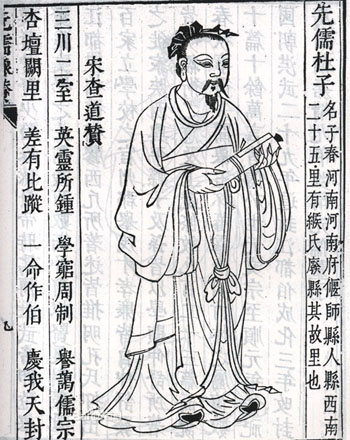 先儒杜子
名子春河南河南府偃師縣人縣西南
二十五里有緱氏廢縣其故里也
宋查道贊
三川二室 英靈所鍾 學窮周制 譽藹儒宗
杏壇闕里 差有比蹤 一命作伯 慶我天封
九